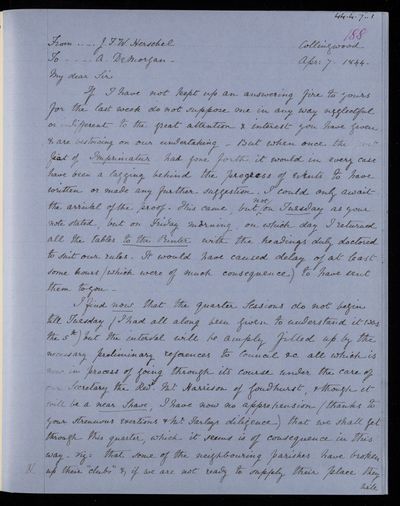 44.4.7.1
188
From .... J F W Herschel Collingwood
To .... A. DeMorgan - Apr: 7. 1844.
My dear Sir
If I have not kept up an answering fire to yours
for the last week do not suppose me in any way neglectful
or indifferent to the great attention & interest you have given
& are bestowing on our undertaking - But when once the
fiat of Imprimatur had gone forth it would in every case
have been a lagging behind the progress of events to have
written or made any further suggestion. I could only await
the arrival of the proof. This came, but not on Tuesday as your
note stated, but on Friday morning, on which day I returned
all the tables to the Printer with the headings duly doctored
to suit our rules. It would have caused delay of at least
some hours (which were of much consequence) to have sent
them to you -
I find now that the quarter Sessions do not begin
till Tuesday (I had all along been given to understand it was
the 5th) but the interval will be amply filled up by the
necessary preliminary references to Council &c all which is
now in process of going through its course under the care of
our Secretary the Revd Mr Harrison of Goudhurst, & though it
will be a near shave, I have now no apprehension (thanks to
your strenuous exertions & Mr Farley's diligence) that we shall get
through this quarter, which it seems is of consequence in this
way. viz: that some of the neighbouring parishes have broken
up their "clubs" &, if we are not ready to supply their place they
will